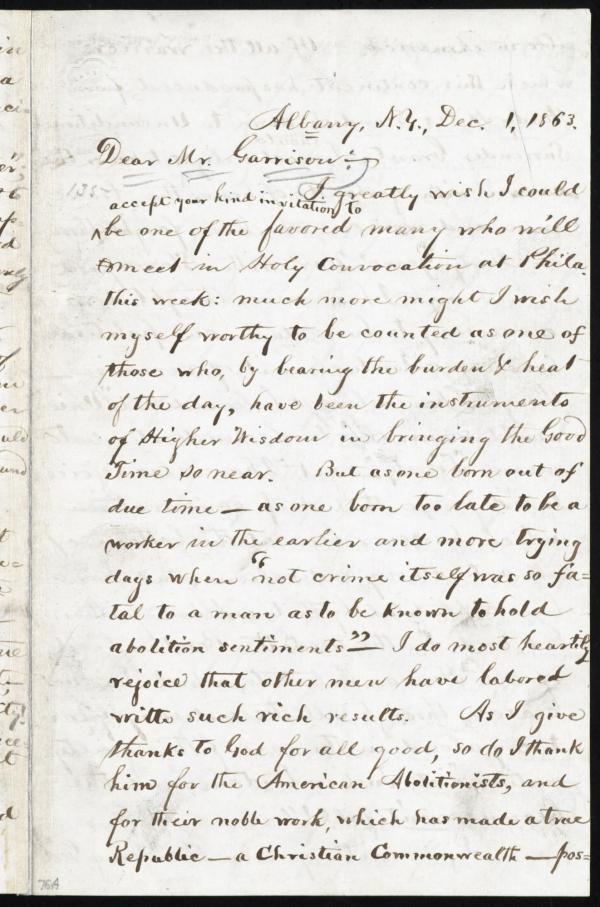 Albany, N.Y., Dec. 1, 1863.
Dear Mr. Garrison:
I greatly wish I could
accept your kind invitation to
be one of the favored many who will
meet in Holy Convocation at Phila.
this week: much more might I wish
myself worthy to be counted as one of
those who, by bearing the burden & heat
of the day, have been the instruments
of Higher Wisdom in bringing the Good
Time so near. But as one born out of
due time — as one born too late to be a
worker in the earlier and more trying
days when "not crime itself was so fa=
tal to a man as to be known to hold
abolition sentiments" — I do most heartily
rejoice that other men have labored
with such rich results. As I give
thanks to God for all good, so do I thank
him for the American Abolitionists, and
for their noble work, which has made a true
Republic — a Christian Commonwealth — pos=
76A